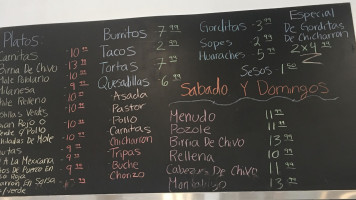 Platos
Carnitas 10
Birria De Chivo 13
Mole Ranchero 10
Milanesa 10
Chile Relleno 10
10
10
Enchiladas De Mole 10
9
A La Mexicana 9
De Puerco En 9
Chicharron En Salsa
Verde
Burritos 7.99
Tacos 2.99
Tortas 7.99
Quesadillas 6.99
Asada
Pastor
Pollo
Carnitas
Chicharron
Tripas
Buche
Chorizo
Gorditas 3.99
Sopes 2.99
Huaraches 5.99
Sesos 1.50
Especial
De Gorditas
De Chicharron
2x4.99
Sabado Y Domingos
Menudo 11.99
Pozole 11.99
Birria De Chivo 13.99
Rellena 10.99
Cabezas De Chivo 11.99
13.99